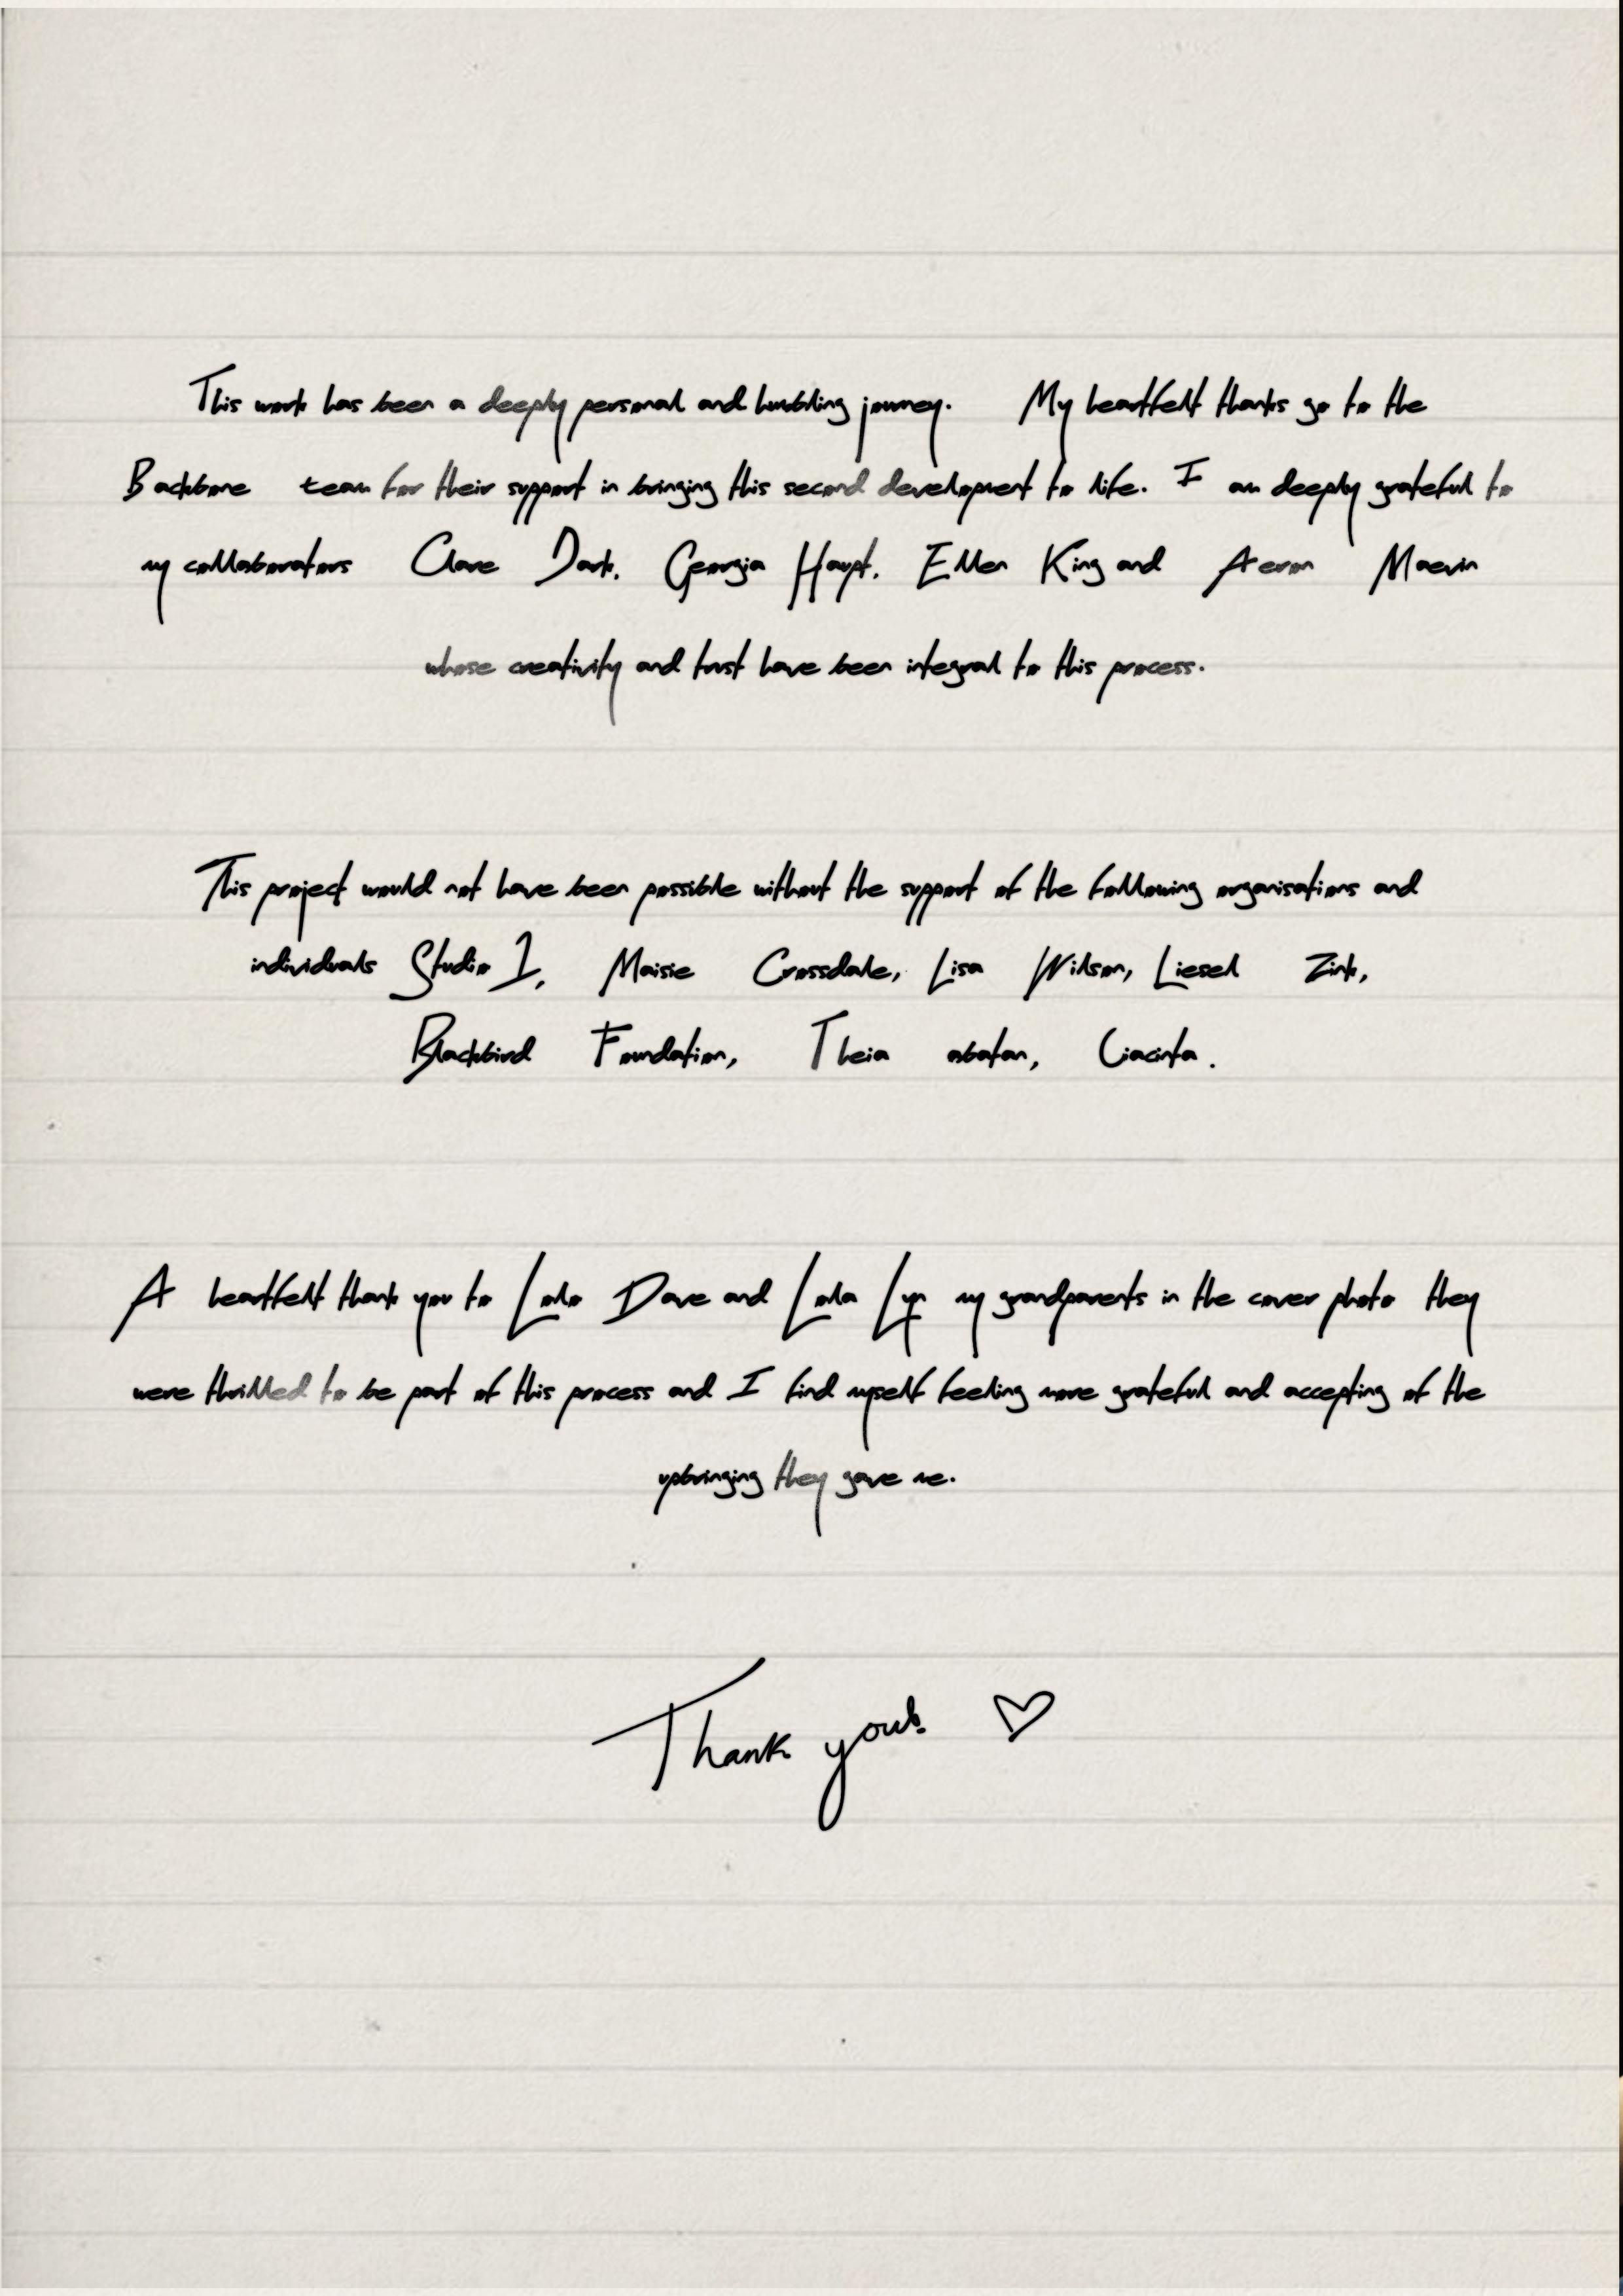 This work has been a deeply personal and humbling journey. My heartfelt thanks go to the
Backbone team for their support in bringing this second development to life. I am deeply grateful to
my collaborators Clare Dark, Georgia Haupt, Ellen King and Aeron Maevin
whose creativity and trust have been integral to this process.
This project would not have been possible without the support of the following organisations and
individuals Studio 1, Maisie Crossdale, Lisa Wilson, Liesel Zink,
Blackbird Foundation, Theia abatan, Ciacinta.
A heartfelt thank you to Lolo Dave and Lola Lyn my grandparents in the cover photo they
were thrilled to be part of this process and I find myself feeling more grateful and accepting of the
upbringing they gave me.
Thank you! ♡